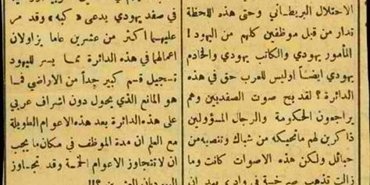 الاحتلال البريطاني وحتى هذه اللحظة
تدار من قبل موظفين كلهم من اليهود !
المأمور يهودي والكاتب يهودي والخادم
يهودي ايضاً اوليس للعرب حق في هذه
الدائرة ؟ لقد بح صوت الصفديين وهم
يراجعون الحكومة والرجال المسؤولين
ذاكرين لهم ماتحيكه من شباك وتنصبه من
حبائل ولكن هذه الاصوات كانت وما
زالت تذهب صرخة في واد
في صفد يهودي يدعى « كبه » وقد مر
عليهما اكثر من عشرين عاما يزاولان
اعمالهما في هذه الدائرة مما يسر لليهود
تسجيل قسم كبير جداً من الاراضي فما
هو المانع الذي يحول دون اشراف عربي
على هذه الدائرة بعد هذه الاعوام الطويلة
مع العلم ان مدة الموظف في مكان ما يجب
ان لا تتجاوز الاعوام الخمسة وقد تجاوز